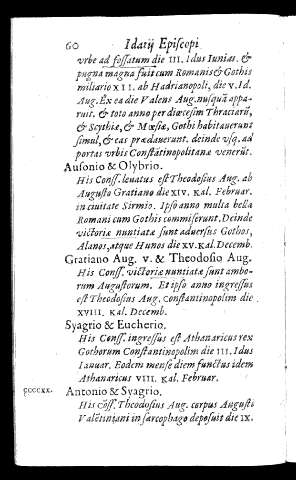 60 Idatij Episcopi
vrbe ad fossatum die III. Idus Iunias. &
pugna magna fuit cum Romanis & Gothis
miliario XII. ab Hadrianopoli, die v. Id.
Aug. Ex ea die Valens Aug. nusquã appa-
ruit. & toto anno per diœcesim Thraciarũ,
& Scythiæ, & Mœsiæ, Gothi habitauerunt
simul, & eas prædauerunt. deinde vsq. ad
portas vrbis Constãtinopolitanæ venerũt.
Ausonio & Olybrio.
His Conss. leuatus est Theodosius Aug. ab
Augusto Gratiano die XIV. Kal. Februar.
in ciuitate Sirmio. Ipso anno multa bella
Romani cum Gothis commiserunt. Deinde
victoriæ nuntiatæ sunt aduersus Gothos,
Alanos, atque Hunos die XV. Kal. Decemb.
Gratiano Aug. v. & Theodosio Aug.
His Conss. victoriæ nuntiatæ sunt ambo-
rum Augustorum. Et ipso anno ingressus
est Theodosius Aug. Constantinopolim die
XVIII. Kal. Decemb.
Syagrio & Eucherio.
His Conss. ingressus est Athanaricus rex
Gothorum Constantinopolim die III. Idus
Ianuar. Eodem mense diem functus idem
Athanaricus VIII. Kal. Februar.
CCCCXX. Antonio & Syagrio.
His cõss. Theodosius Aug. corpus Augusti
Valẽtiniani in sarcophago deposuit die IX.